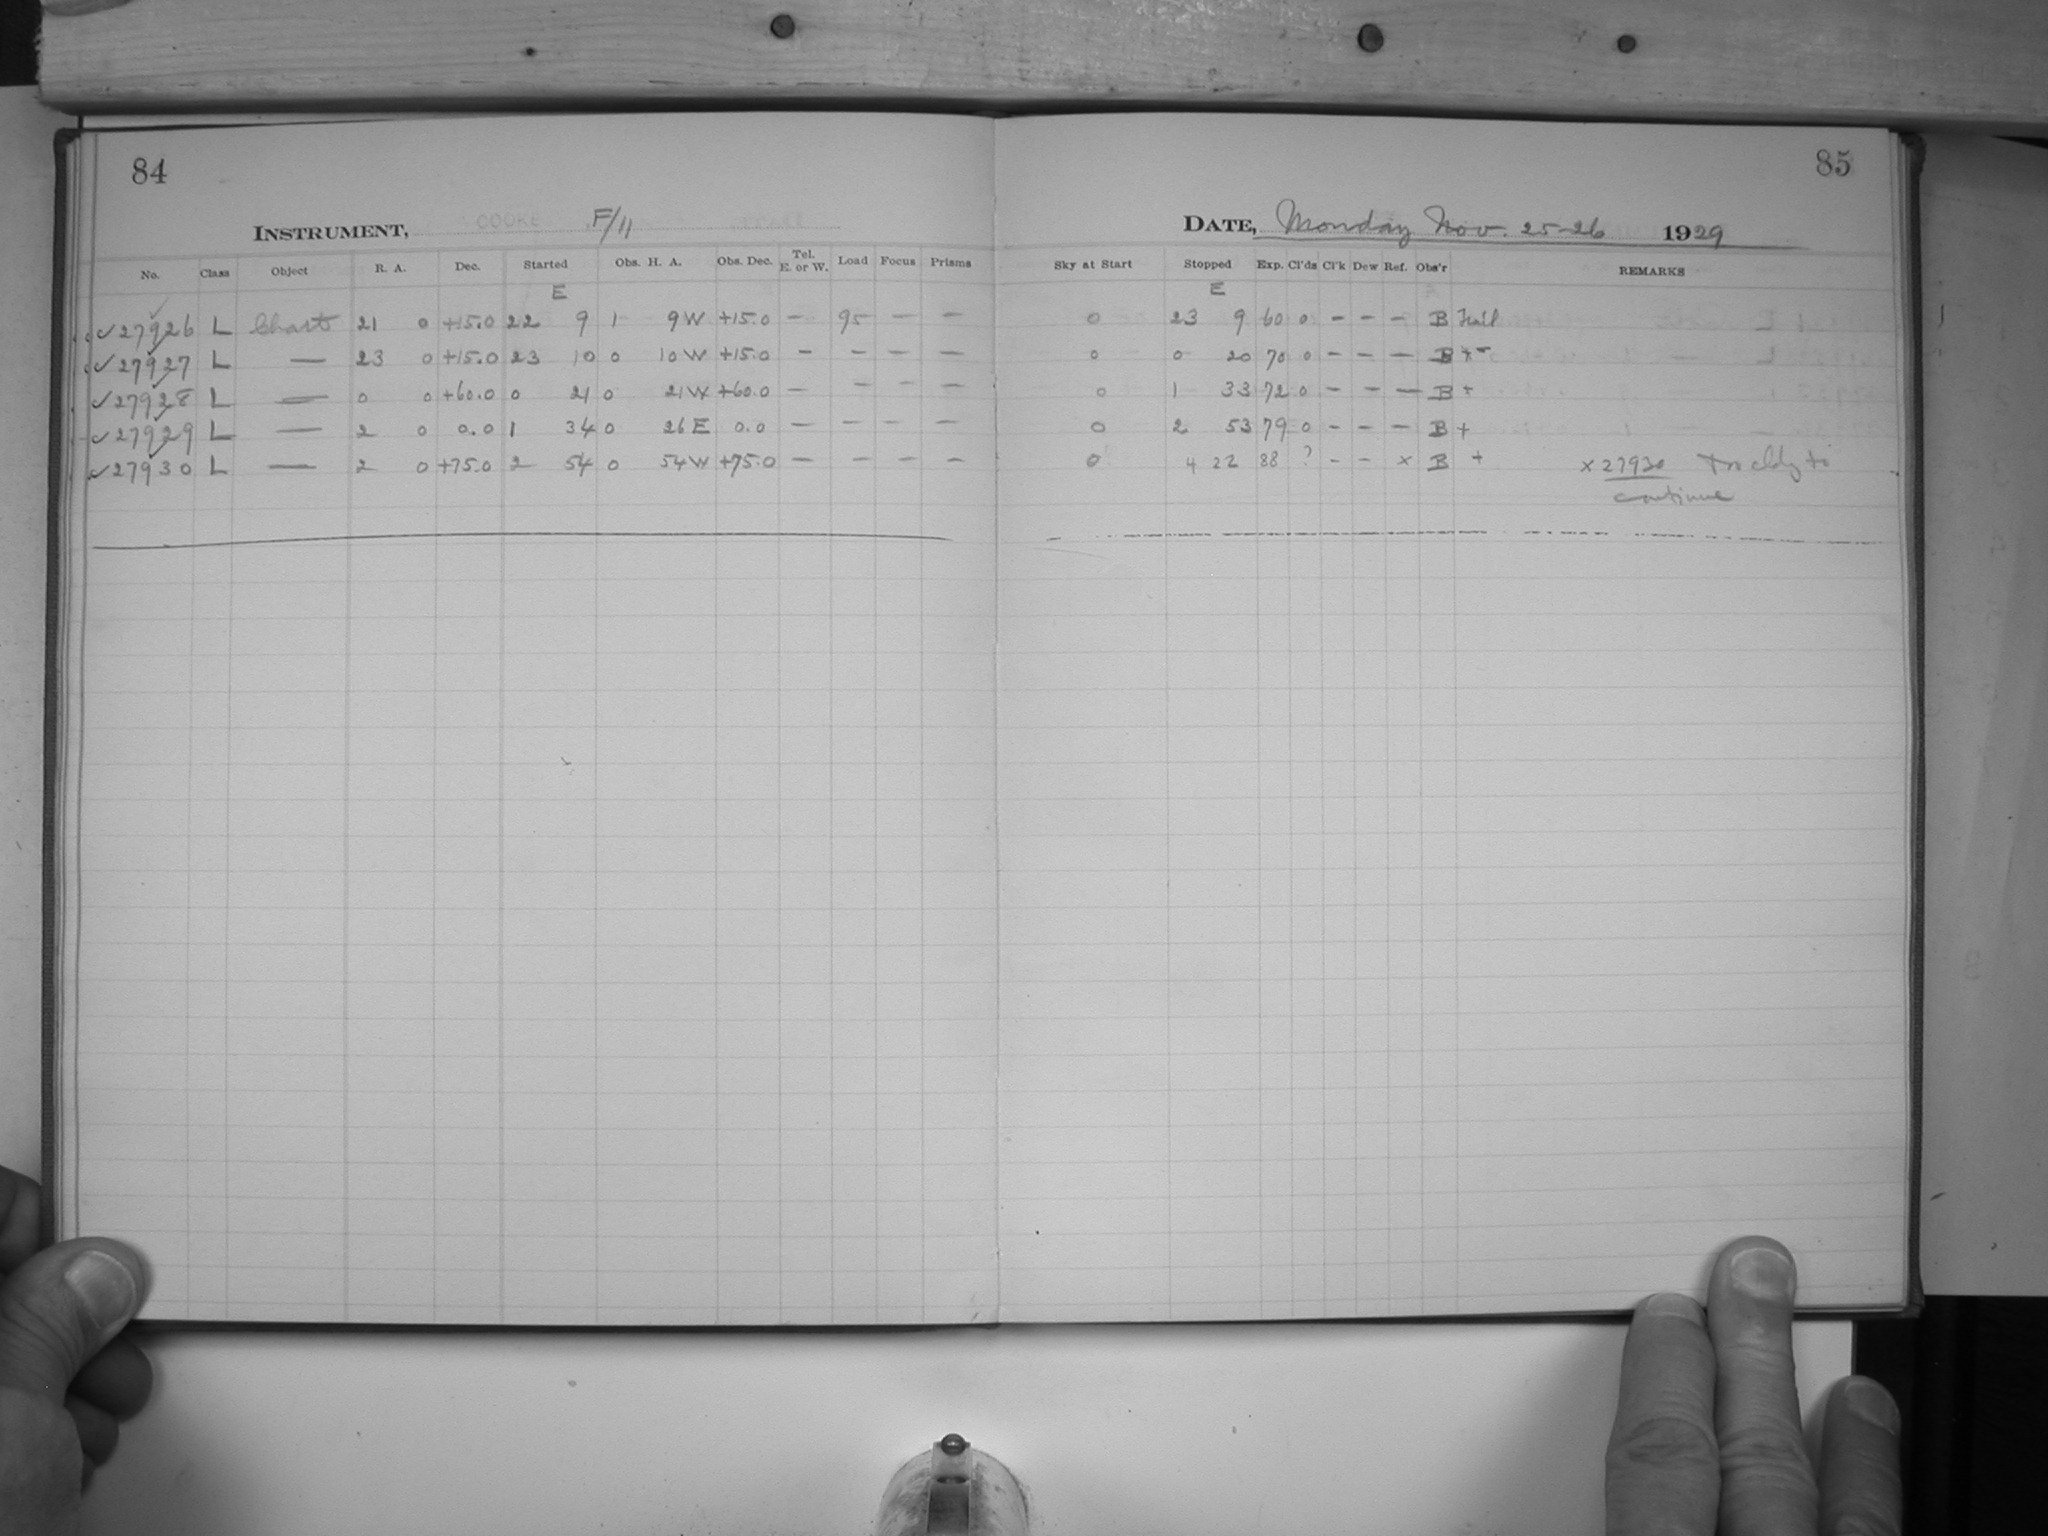 84
85
INSTRUMENT, COOKE F/11
DATE, Monday Nov. 25-26 1929
No. Class Object R. A. Dec. Started Obs. H. A. Obs. Dec. Tel. E. or W. Load Focus Prisms Sky at Start Stopped Exp. Cl'ds Cl'k Dew Ref. Obs'r REMARKS
E E
✓27926 L Chart 21 0 +15.0 22 9 1 9W +15.0 — 95 — — 0 23 9 60 0 - - - B
✓27927 L — 23 0 +15.0 23 10 0 10W +15.0 — — — — 0 0 20 70 0 - - - B + -
✓27928 L — 0 0 +60.0 0 21 0 21W +60.0 — — — — 0 1 33 72 0 - - - B +
✓27929 L — 2 0 0.0 1 34 0 26E 0.0 — — — — 0 2 53 79 0 - - - B +
✓27930 L — 2 0 +75.0 2 54 0 54W +75.0 — — — — 0 4 22 88 ? - - x B + x 27930 Too cldy to
continue